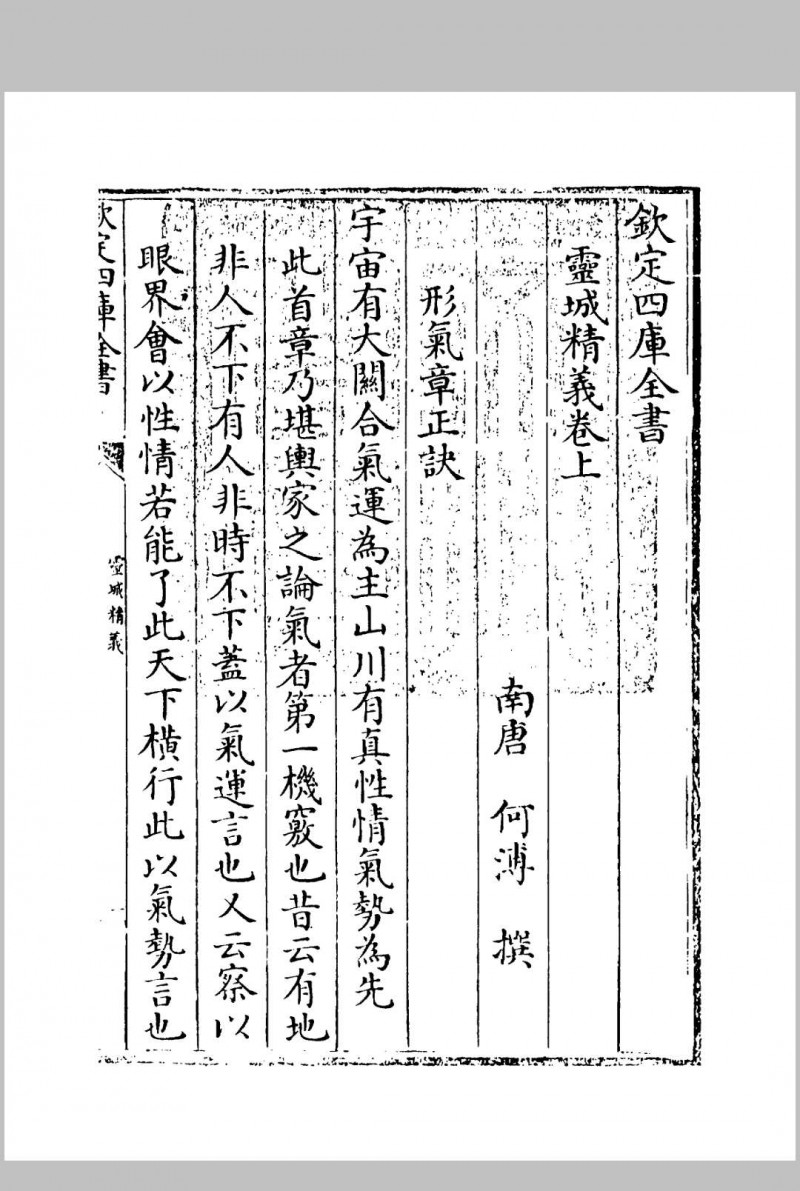 欽定四庫全書
靈城精義卷上
南唐 何溥 撰
形氣章正訣
宇宙有大關合氣運為主山川有真性情氣勢為先
此首章乃堪輿家之論氣者第一機竅也昔云有地
非人不下有人非時不下蓋以氣運言也又云察以
眼界會以性情若能了此天下橫行此以氣勢言也
欽定四庫全書
靈城精義